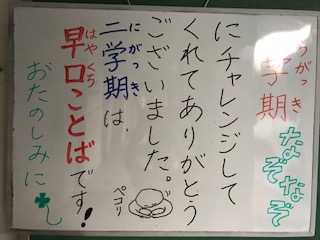 がっき
学期 なぞなぞ
にチャレンジして
くれてありがとう
ございました。
ペコリ
にがっき
二学期は、
はやくち
早口ことばです!
おたのしみに